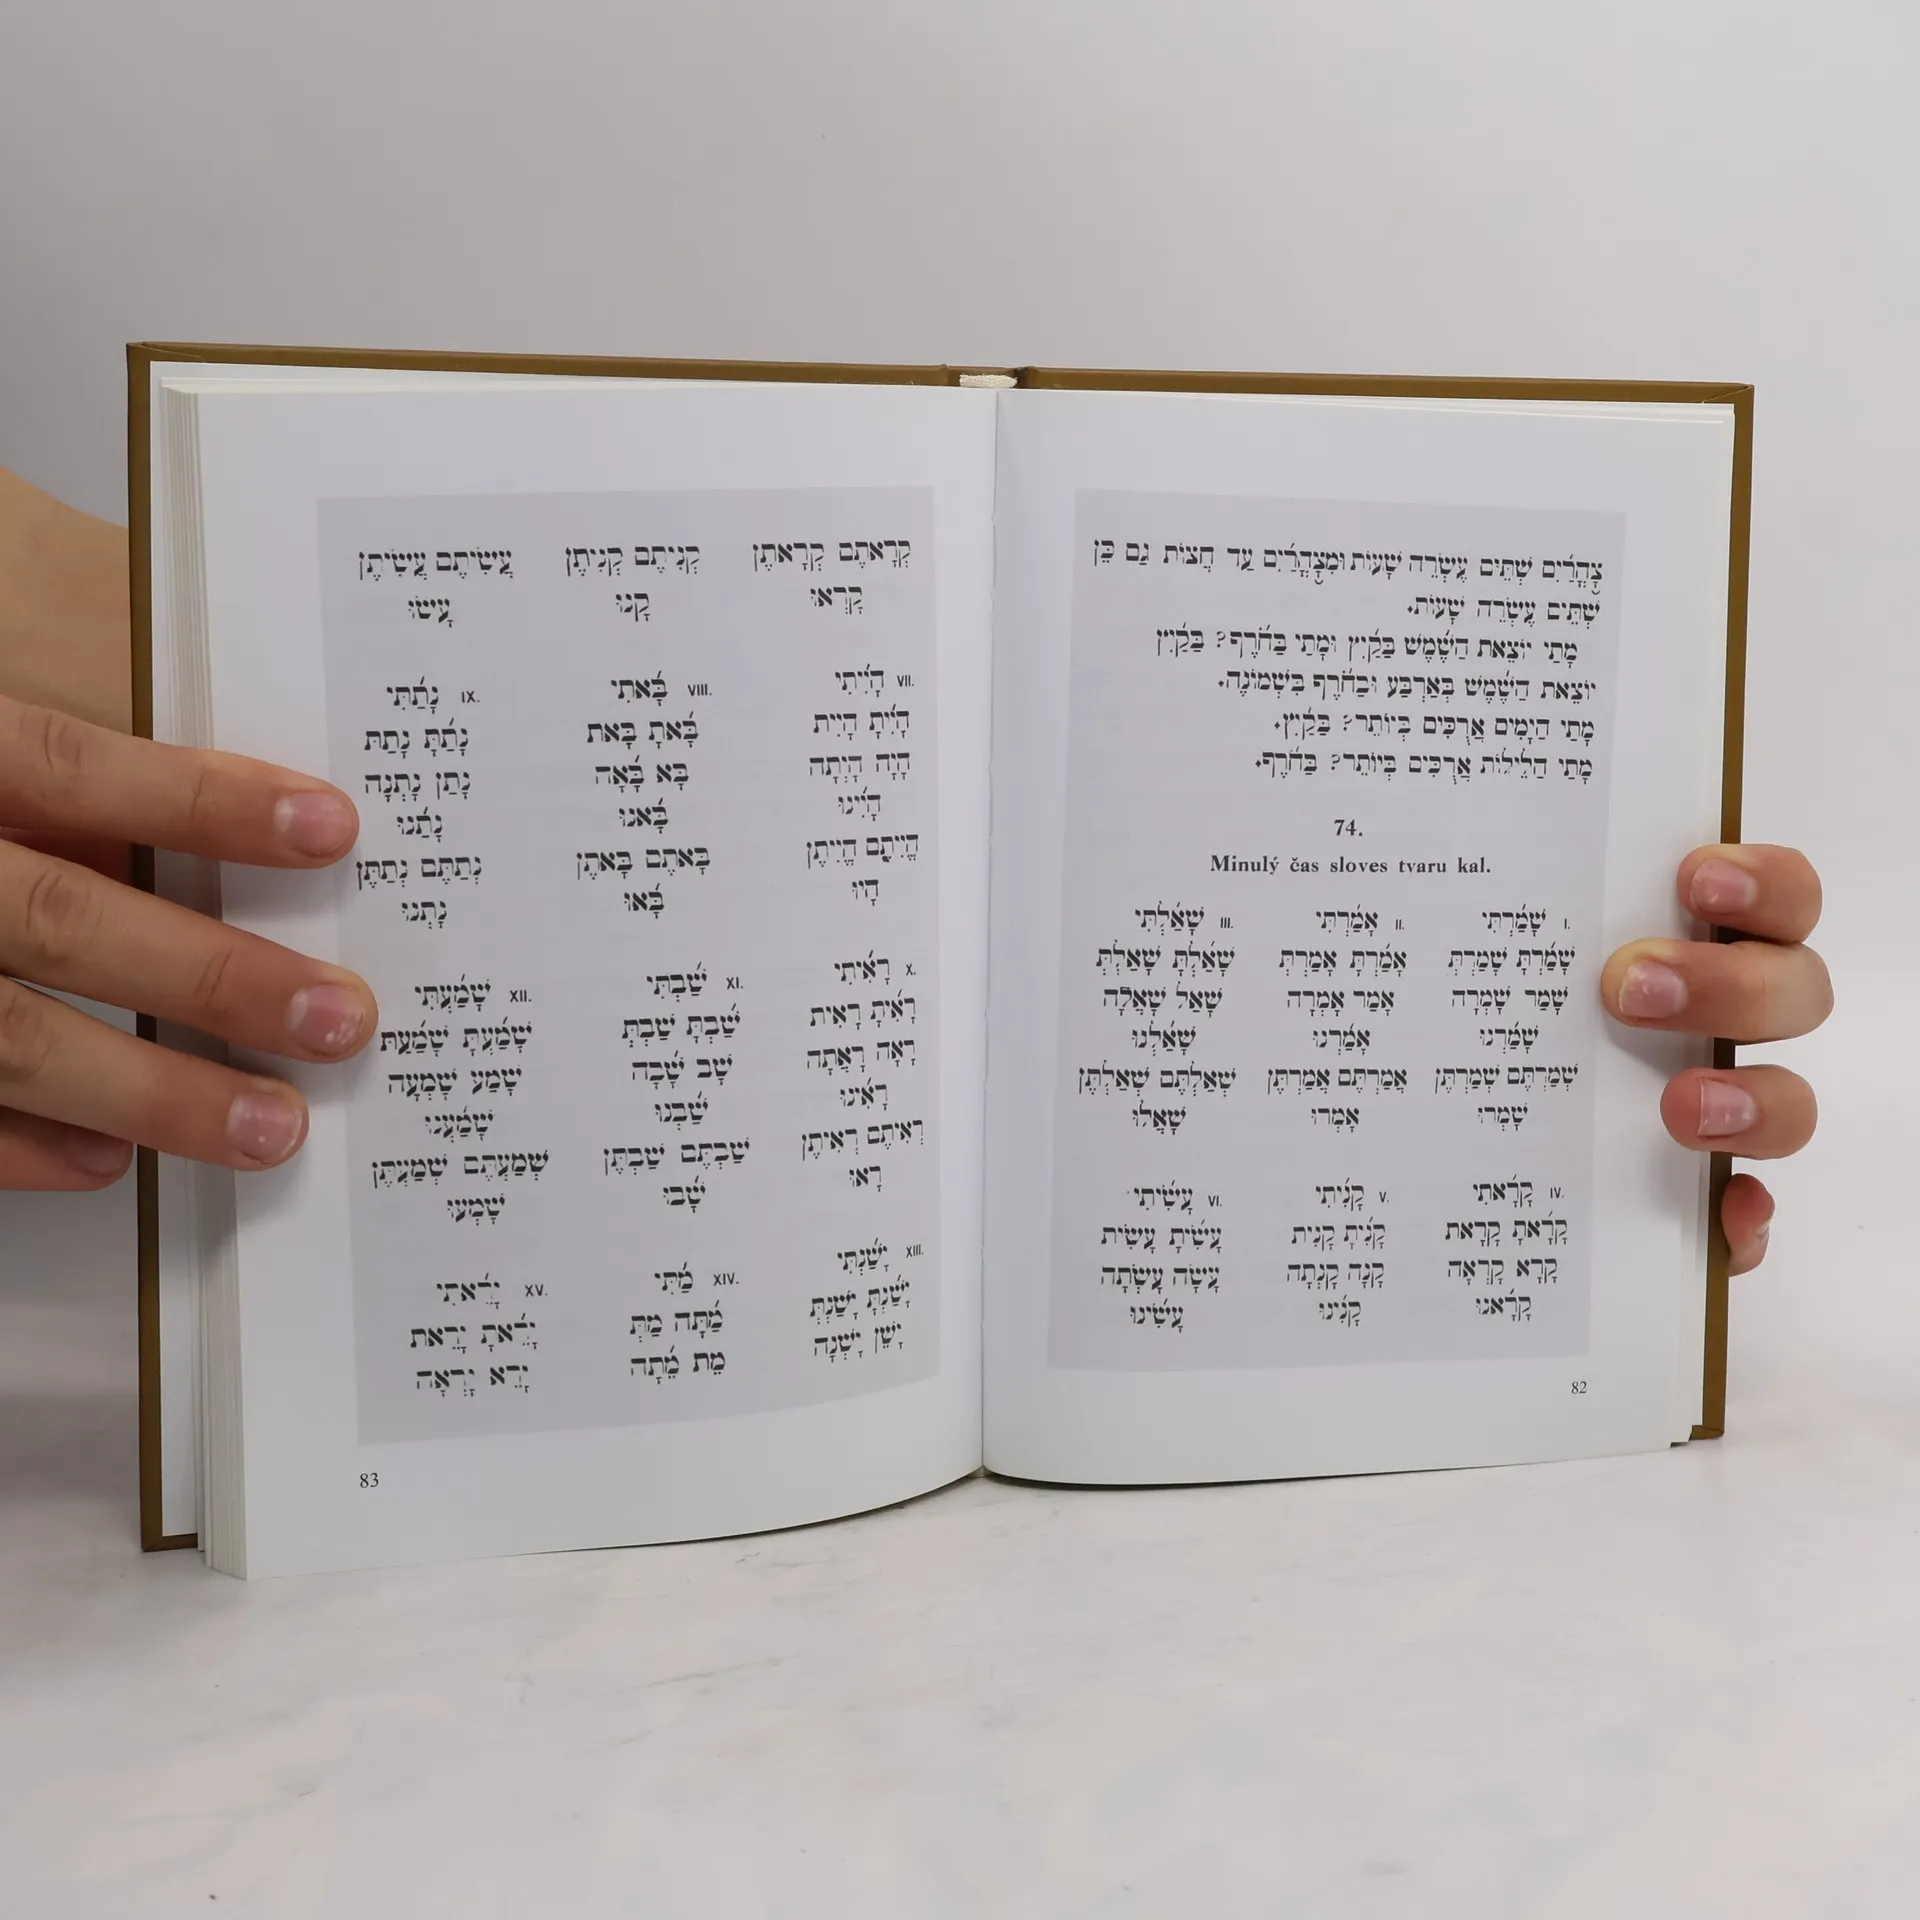 צָהֳרַ֫יִם שְׁתֵּים עֶשְׂרֵה שָׁעוֹת וּמִצָּהֳרַ֫יִם עַד חֲצוֹת גַּם כֵּן
שְׁתֵּים עֶשְׂרֵה שָׁעוֹת.
מָתַי יוֹצֵאת הַשֶּׁ֫מֶשׁ בַּקַּ֫יִץ וּמָתַי בַּחֹ֫רֶף? בַּקַּ֫יִץ
יוֹצֵאת הַשֶּׁ֫מֶשׁ בְּאַרְבַּע וּבַחֹ֫רֶף בִּשְׁמוֹנֶה.
מָתַי הַיָּמִים אֲרֻכִּים בְּיוֹתֵר? בַּקַּ֫יִץ.
מָתַי הַלֵּילוֹת אֲרֻכִּים בְּיוֹתֵר? בַּחֹ֫רֶף.
74.
Minulý čas sloves tvaru kal.
I. שָׁמַ֫רְתִּי II. אָמַ֫רְתִּי III. שָׁאַ֫לְתִּי
שָׁמַ֫רְתָּ שָׁמַרְתְּ אָמַ֫רְתָּ אָמַרְתְּ שָׁאַ֫לְתָּ שָׁאַלְתְּ
שָׁמַר שָׁמְרָה אָמַר אָמְרָה שָׁאַל שָׁאֲלָה
שָׁמַ֫רְנוּ אָמַ֫רְנוּ שָׁאַ֫לְנוּ
שְׁמַרְתֶּם שְׁמַרְתֶּן אֲמַרְתֶּם אֲמַרְתֶּן שְׁאַלְתֶּם שְׁאַלְתֶּן
שָׁמְרוּ אָמְרוּ שָׁאֲלוּ
IV. קָרָ֫אתִי V. קָנִ֫יתִי VI. עָשִׂ֫יתִי
קָרָ֫אתָ קָרָאת קָנִ֫יתָ קָנִית עָשִׂ֫יתָ עָשִׂית
קָרָא קָרְאָה קָנָה קָנְתָה עָשָׂה עָשְׂתָה
קָרָ֫אנוּ קָנִ֫ינוּ עָשִׂ֫ינוּ
82
קְרָאתֶם קְרָאתֶן קְנִיתֶם קְנִיתֶן עֲשִׂיתֶם עֲשִׂיתֶן
קָרְאוּ קָנוּ עָשׂוּ
VII. הָיִ֫יתִי VIII. בָּ֫אתִי IX. נָתַ֫תִּי
הָיִ֫יתָ הָיִית בָּ֫אתָ בָּאת נָתַ֫תָּ נָתַתְּ
הָיָה הָיְתָה בָּא בָּ֫אָה נָתַן נָתְנָה
הָיִ֫ינוּ בָּ֫אנוּ נָתַ֫נּוּ
הֱיִיתֶם הֱיִיתֶן בָּאתֶם בָּאתֶן נְתַתֶּם נְתַתֶּן
הָיוּ בָּ֫אוּ נָתְנוּ
X. רָאִ֫יתִי XI. שַׁ֫בְתִּי XII. שָׁמַ֫עְתִּי
רָאִ֫יתָ רָאִית שַׁ֫בְתָּ שַׁבְתְּ שָׁמַ֫עְתָּ שָׁמַ֫עַתְּ
רָאָה רָאֲתָה שָׁב שָׁ֫בָה שָׁמַע שָׁמְעָה
רָאִ֫ינוּ שַׁ֫בְנוּ שָׁמַ֫עְנוּ
רְאִיתֶם רְאִיתֶן שַׁבְתֶּם שַׁבְתֶּן שְׁמַעְתֶּם שְׁמַעְתֶּן
רָאוּ שָׁ֫בוּ שָׁמְעוּ
XIII. יָשַׁ֫נְתִּי XIV. מַ֫תִּי XV. יָרֵ֫אתִי
יָשַׁ֫נְתָּ יָשַׁנְתְּ מַ֫תָּה מַתְּ יָרֵ֫אתָ יָרֵאת
יָשֵׁן יָשְׁנָה מֵת מֵ֫תָה יָרֵא יָרְאָה
83